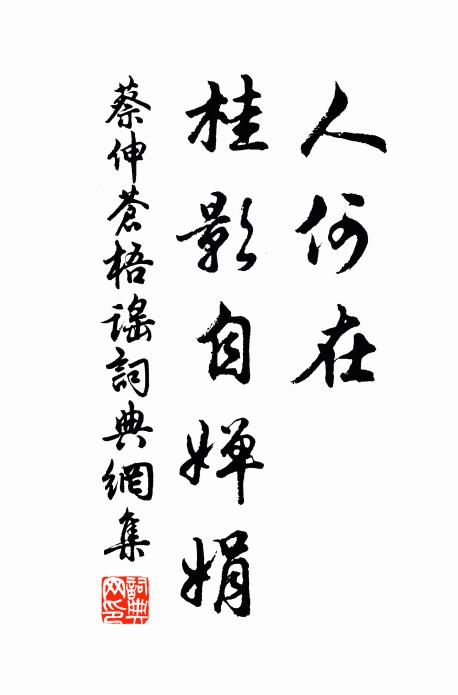 人何在
桂影自婵娟
蔡伸蒼梧謠詞典網集
詞典網印